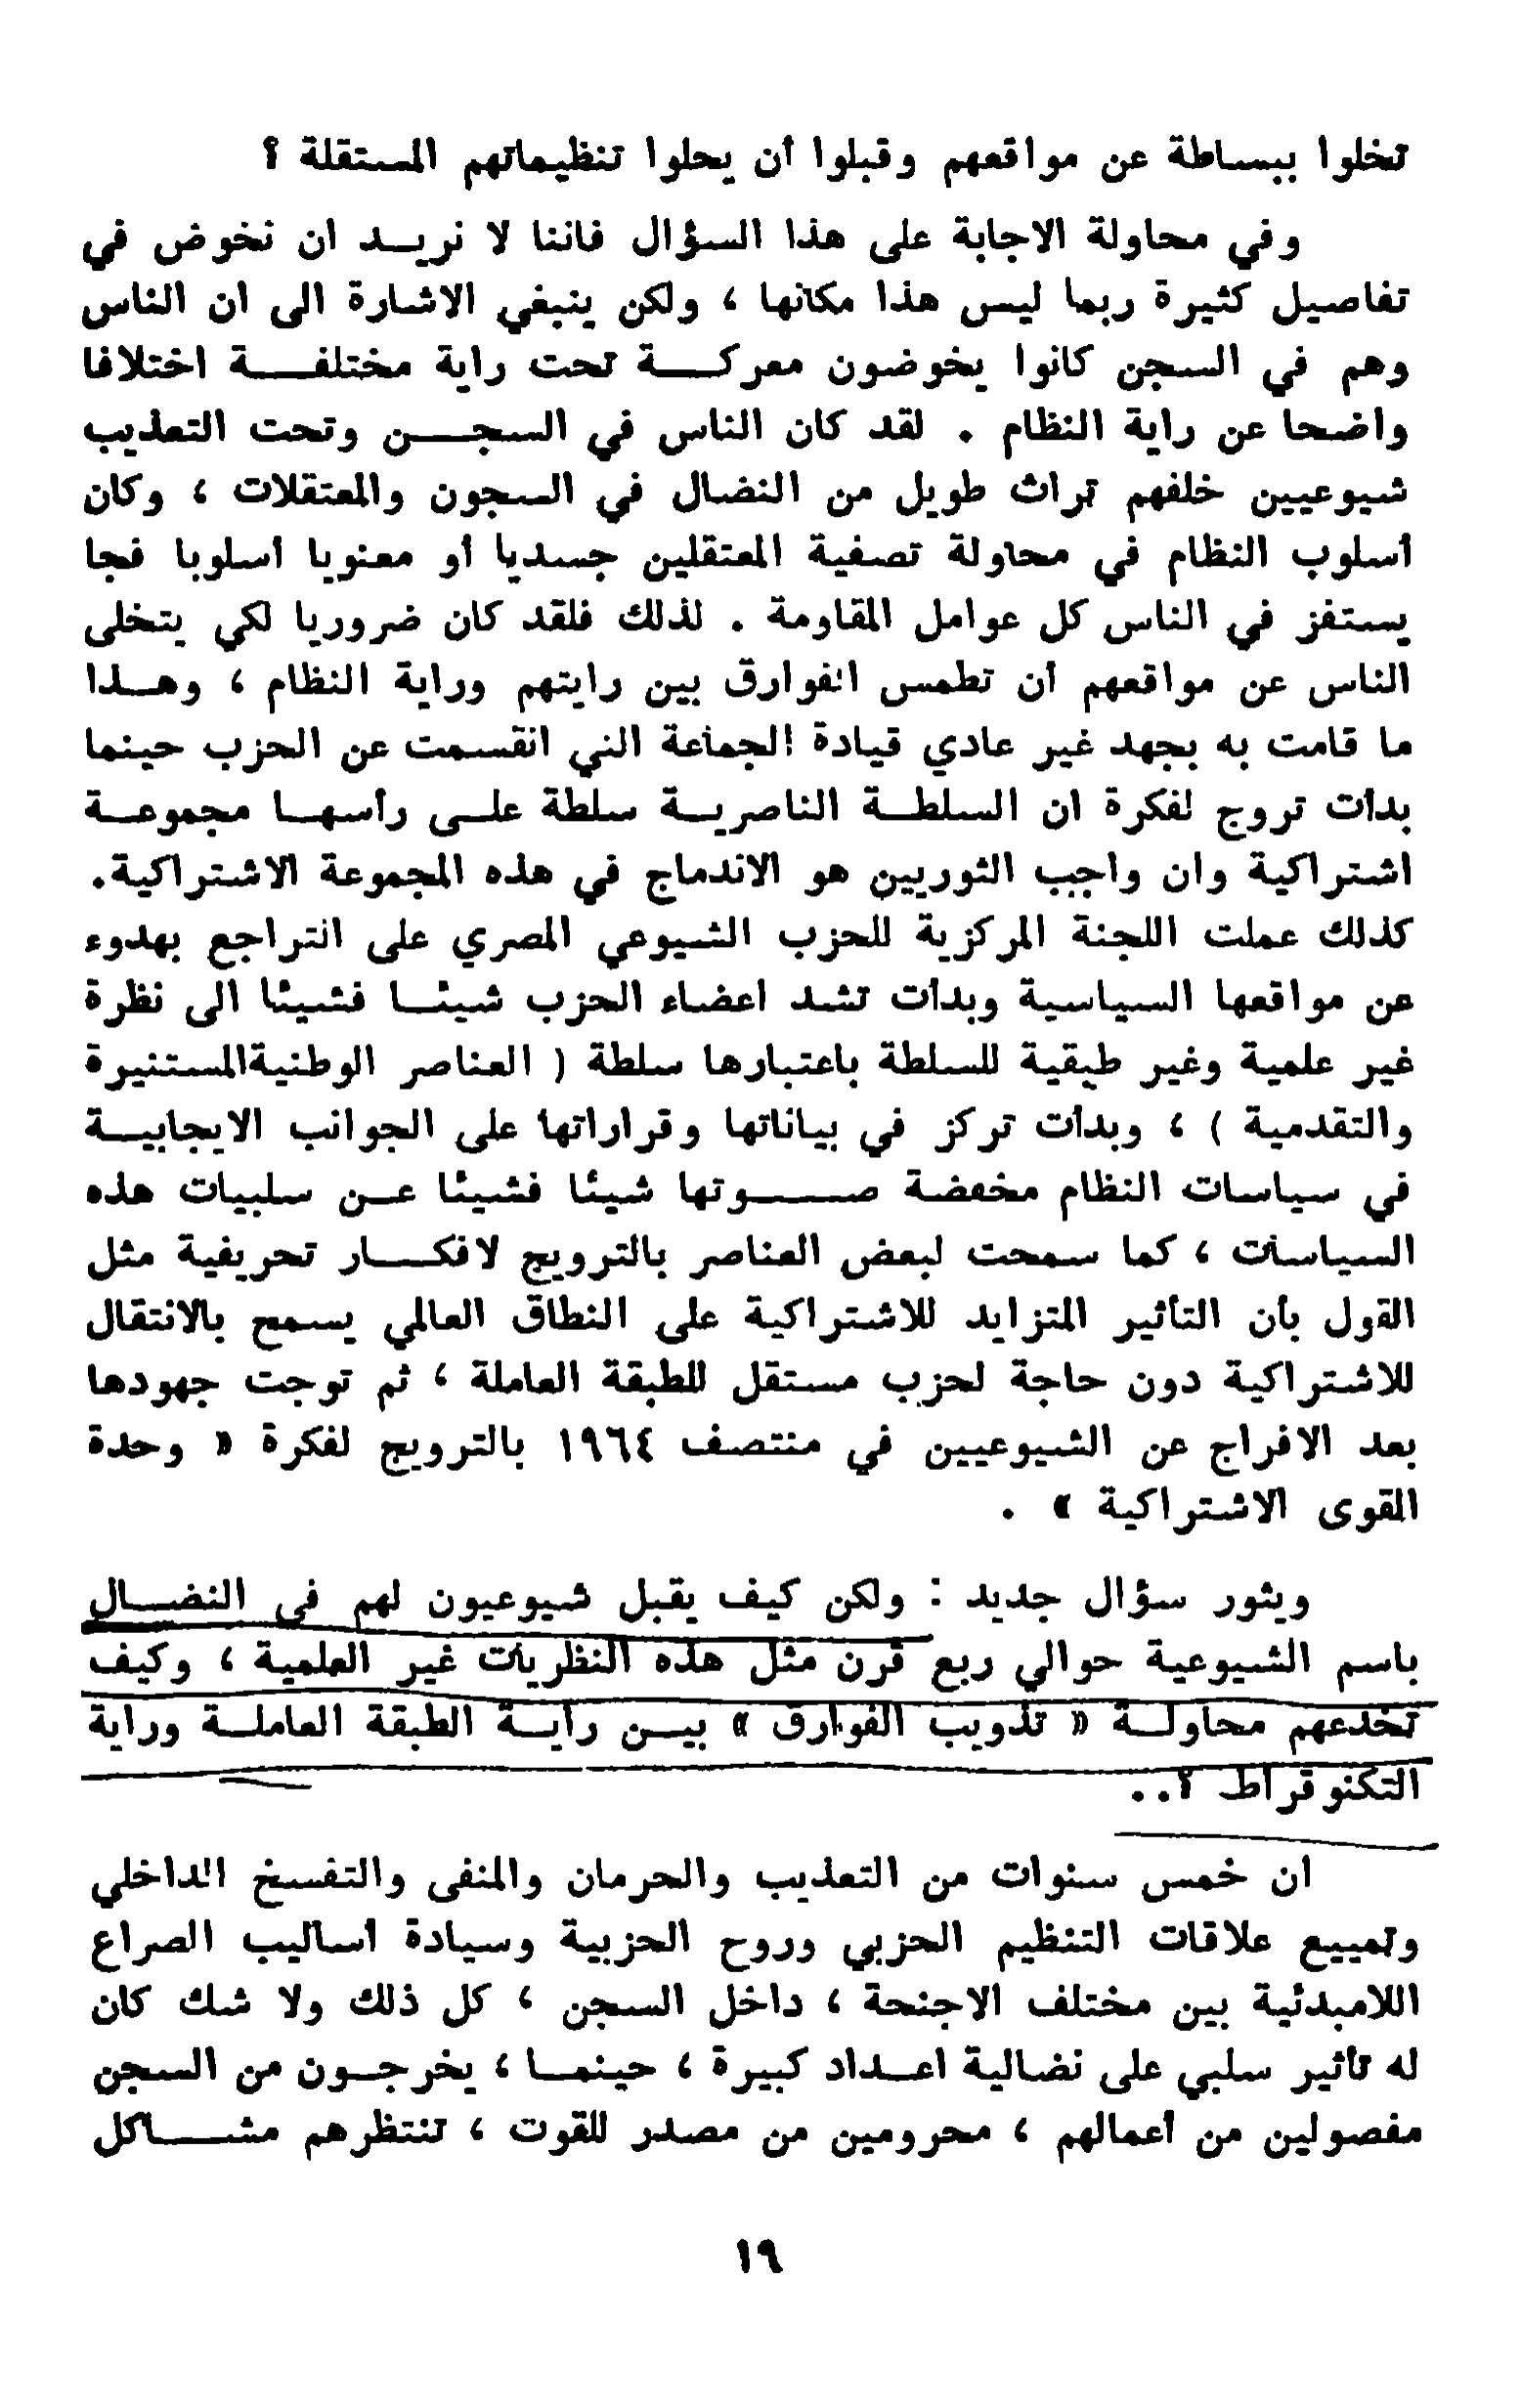 تخلوا ببساطة عن مواقعهم وقبلوا أن يحلوا تنظيماتهم المستقلة ؟
وفي محاولة الاجابة على هذا السؤال فاننا لا نريد ان نخوض في
تفاصيل كثيرة ربما ليس هذا مكانها ، ولكن ينبغي الاشارة الى ان الناس
وهم في السجن كانوا يخوضون معركة تحت راية مختلفة اختلافا
واضحا عن راية النظام . لقد كان الناس في السجن وتحت التعذيب
شيوعيين خلفهم تراث طويل من النضال في السجون والمعتقلات ، وكان
أسلوب النظام في محاولة تصفية المعتقلين جسديا أو معنويا أسلوبا فجا
يستفز في الناس كل عوامل المقاومة . لذلك فلقد كان ضروريا لكي يتخلى
الناس عن مواقعهم أن تطمس الفوارق بين رايتهم وراية النظام ، وهذا
ما قامت به بجهد غير عادي قيادة الجماعة التي انقسمت عن الحزب حينما
بدأت تروج لفكرة ان السلطة الناصرية سلطة على رأسها مجموعة
اشتراكية وان واجب الثوريين هو الاندماج في هذه المجموعة الاشتراكية.
كذلك عملت اللجنة المركزية للحزب الشيوعي المصري على التراجع بهدوء
عن مواقعها السياسية وبدأت تشد اعضاء الحزب شيئا فشيئا الى نظرة
غير علمية وغير طبقية للسلطة باعتبارها سلطة ( العناصر الوطنيةالمستنيرة
والتقدمية ) ، وبدأت تركز في بياناتها وقراراتها على الجوانب الايجابية
في سياسات النظام مخفضة صوتها شيئا فشيئا عن سلبيات هذه
السياسات ، كما سمحت لبعض العناصر بالترويج لافكار تحريفية مثل
القول بأن التأثير المتزايد للاشتراكية على النطاق العالمي يسمح بالانتقال
للاشتراكية دون حاجة لحزب مستقل للطبقة العاملة ، ثم توجت جهودها
بعد الافراج عن الشيوعيين في منتصف ١٩٦٤ بالترويج لفكرة « وحدة
القوى الاشتراكية » .
ويثور سؤال جديد : ولكن كيف يقبل شيوعيون لهم في النضال
باسم الشيوعية حوالي ربع قرن مثل هذه النظريات غير العلمية ، وكيف
تخدعهم محاولة « تذويب الفوارق » بين راية الطبقة العاملة وراية
التكنوقراط ؟..
ان خمس سنوات من التعذيب والحرمان والمنفى والتفسخ الداخلي
وتمييع علاقات التنظيم الحزبي وروح الحزبية وسيادة أساليب الصراع
اللامبدئية بين مختلف الاجنحة ، داخل السجن ، كل ذلك ولا شك كان
له تأثير سلبي على نضالية اعداد كبيرة ، حينما ، يخرجون من السجن
مفصولين من أعمالهم ، محرومين من مصدر للقوت ، تنتظرهم مشاكل
١٩